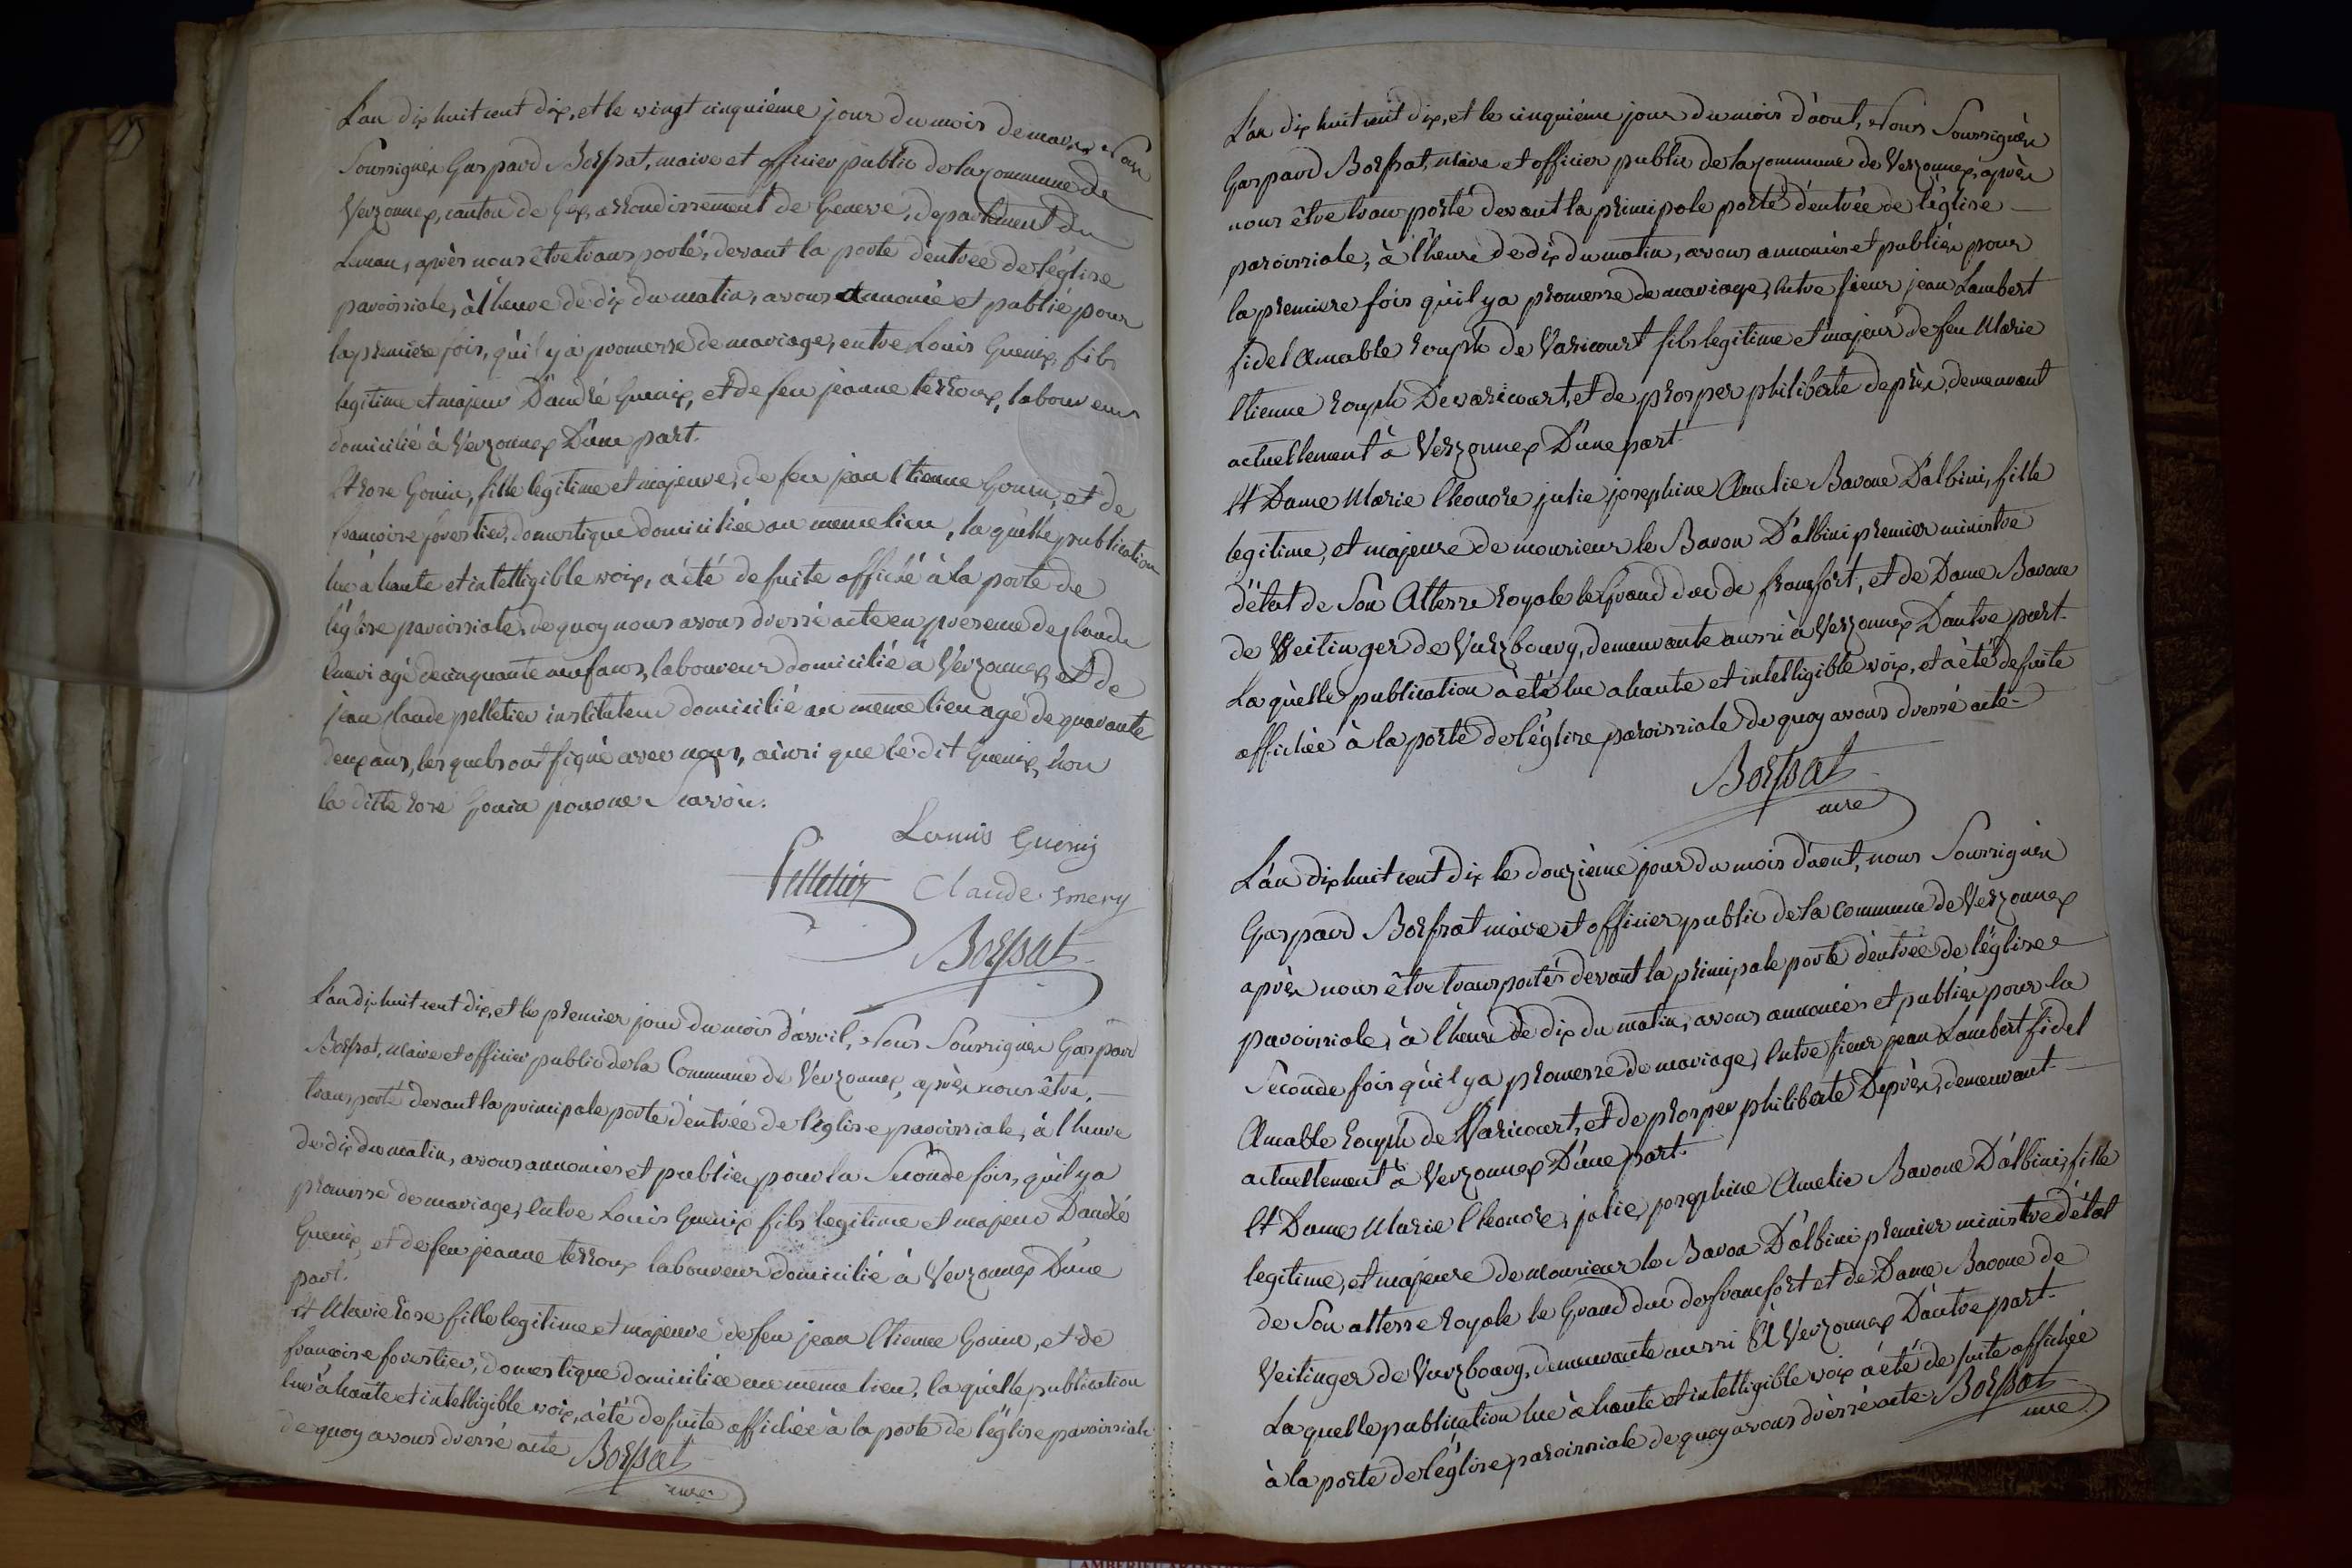 L'an dix huit cent dix, et le vingt cinquiéme jour du mois de mars, Nous
Soussignéz Gaspard Borssat, maire et officier public de la Commune de
Verzonnex, canton de Gex, arrondissement de Geneve, departement du
Leman, après nous être transporté, devant la porte d'entrée de l'église
paroissiale, à l'heure de dix du matin, avons annoncé et publié pour
la premiere fois, qu'il y a promesse de mariage, entre Louis Guenix, fils
legitime et majeur D'andré Guenix, et de feu jeanne terroux, laboureur
domicilié à Verzonnex D'une part.
Et Rose Gonin, fille legitime et majeure, de feu jean Etienne Gonin, et de
francoise forestier, domestique domiciliée au meme lieu, la quelle publication
lue à haute et intelligible voix, a été de suite affiché à la porte de
l'église paroissiale, de quoy nous avons dressé acte en presence de claude
Emeri agé de cinquante neuf ans, laboureur domicilié à Verzonnex, et de
jean Claude pelletier instituteur domicilié au meme lieu agé de quarante
deux ans, les quels ont signé avec nous, ainsi que le dit Guenix, non
la ditte Rose Gonin pour ne Scavoir.
Lamis Guenix
Pelletier Claude Emery
Borssat
L'an dix huit cent dix, et le premier jour du mois d'avril, Nous Soussignéz Gaspard
Borssat, Maire et officier public de la Commune de Verzonnex, après nous être
transporté devant la principale porte d'entrée de l'église paroissiale, à l'heure
de dix du matin, avons annoncés et publiéz pour la Seconde fois, qu'il y a
promesse de mariage, Entre Louis Guenix fils legitime et majeur D'andré
Guenix, et de feu jeanne terroux laboureur domicilié à Verzonnex D'une
part.
Et Marie Rose fille legitime et majeure de feu jean Etienne Gonin, et de
francoise forestier, domestique domiciliée au meme lieu, la quelle publication
lue à haute et intelligible voix, a été de suite affichée à la porte de l'église paroissiale
de quoy avons dressé acte Borssat
mre
L'an dix huit cent dix, et le cinquiéme jour du mois d'aout, Nous Soussignéz
Gaspard Borssat, Maire et officier public de la Commune de Verzonnex, après
nous être transporté devant la principale porte d'entrée de l'église
paroissiale, à l'heure de dix du matin, avons annoncés et publiéz pour
la premiere fois qu'il y a promesse de mariage, Entre sieur jean Lambert
fidel Amable Rouph de Varicourt fils legitime et majeur de feu Marie
Etienne Rouph Devaricourt, et de prosper philiberte depréz, demeurant
actuellement à Verzonnex D'une part.
Et Dame Marie Eleonore julie josephine Amelie Barone D'albini, fille
legitime, et majeure de monsieur le Baron D'albini premier ministre
d'état de Son Altesse Royale le Grand duc de francfort, et de Dame Barone
de Veitinger de Vurzbourg, demeurante aussi à Verzonnex D'autre part.
La quelle publication a été lue a haute et intelligible voix, et a été de suite
affichée à la porte de l'église paroissiale de quoy avons dressé acte
Borssat
mre
L'an dix huit cent dix le douzième jour du mois d'aout, nous Soussignéz
Gaspard Borssat maire et officier public de la Commune de Verzonnex
après nous être transportés devant la principale porte d'entrée de l'église
paroissiale, à l'heure de dix du matin, avons annoncés et publiéz pour la
Seconde fois qu'il y a promesse de mariage, Entre sieur jean Lambert fidel
Amable Rouph de Varicourt, et de prosper philiberte Depréz, demeurant
actuellement à Verzonnex D'une part.
Et Dame Marie Eleonore, julie, josephine Amelie Barone D'albini, fille
legitime, et majeure de Monsieur le Baron D'albini premier ministre d'état
de Son altesse Royale le Grand duc de francfort et de Dame Barone de
Veitinger de Vurzbourg, demeurante aussi à Verzonnex D'autre part.
La quelle publication lue à haute et intelligible voix a été de suite affichée
à la porte de l'église paroissiale de quoy avons dressé acte Borssat
mre